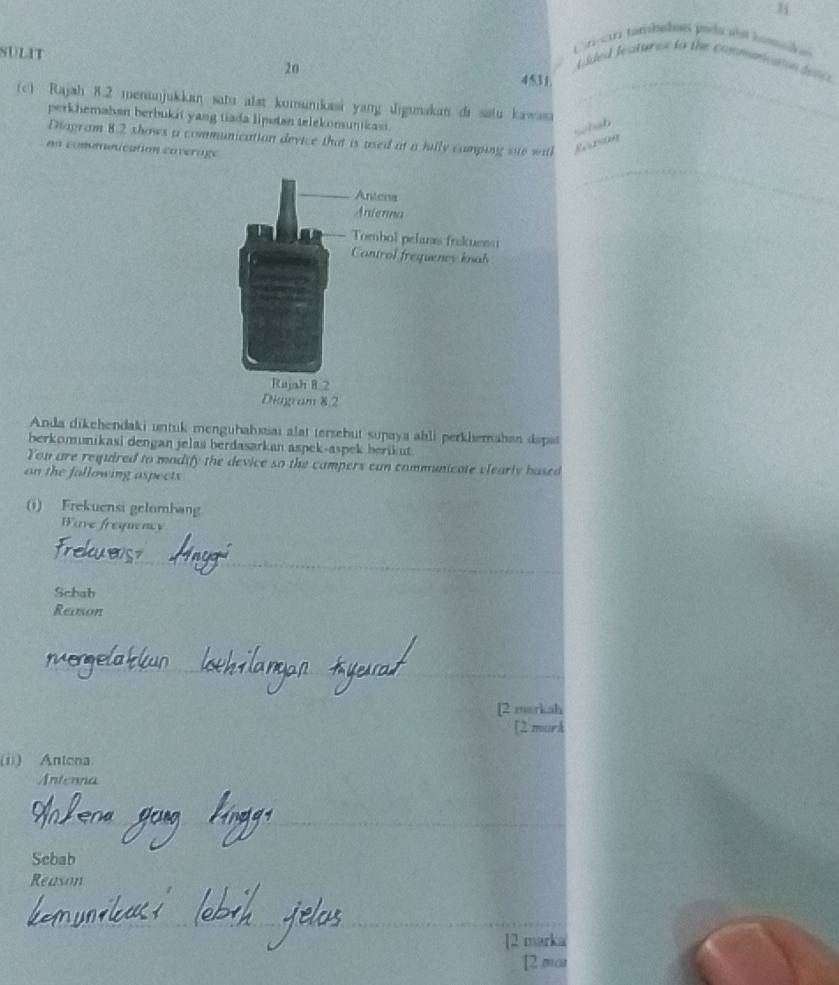 SULIT
20
4531
(c) Rajah 8.2 menunjukkan satu alat komunikasi yang digunakan di satu kawasa
perkhemahan berbukit yang tiada liputan telekomunikasi.
Diagram 8.2 shows a communication device that is used at a hilly camping site with
no communication coverage
Antena
Antenna
Tombol pelaras frekuensi
Control frequency knob
Rajah 8.2
Diagram 8.2
Anda dikehendaki untuk mengubahsuai alat tersebut supaya ahli perkhemahan dapat
berkomunikasi dengan jelas berdasarkan aspek-aspek berikut
You are required to modify the device so the campers can communicate clearly based
on the following aspects
(i) Frekuensi gelombang
Wave frequency
Frekuensi tinggi
Sebab
Reason
mengelakkan kehilangan
[2 markah
[2 mark
(ii) Antena
Antenna
Antena yang tinggi
Sebab
Reason
komunikasi lebih jelas
[2 marka
[2 mar
21
Ciri-ciri tambahan pada alat komunikasi
Added features to the communication device
Sebab
Reason